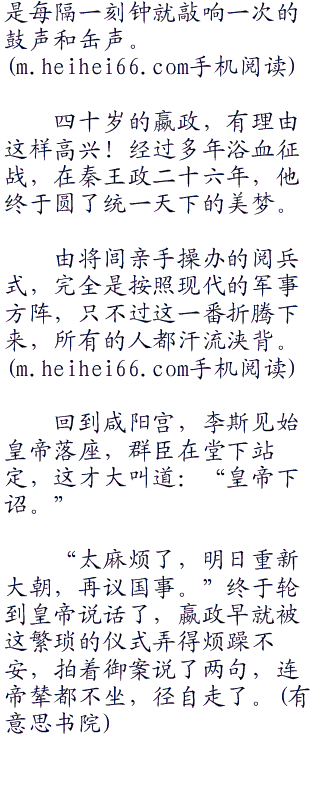 是每隔一刻钟就敲响一次的
鼓声和缶声。
(m.heihei66.com手机阅读)
四十岁的嬴政，有理由
这样高兴！经过多年浴血征
战，在秦王政二十六年，他
终于圆了统一天下的美梦。
由将闾亲手操办的阅兵
式，完全是按照现代的军事
方阵，只不过这一番折腾下
来，所有的人都汗流浃背。
(m.heihei66.com手机阅读)
回到咸阳宫，李斯见始
皇帝落座，群臣在堂下站
定，这才大叫道：“皇帝下
诏。”
“太麻烦了，明日重新
大朝，再议国事。”终于轮
到皇帝说话了，嬴政早就被
这繁琐的仪式弄得烦躁不
安，拍着御案说了两句，连
帝辇都不坐，径自走了。(有
意思书院)